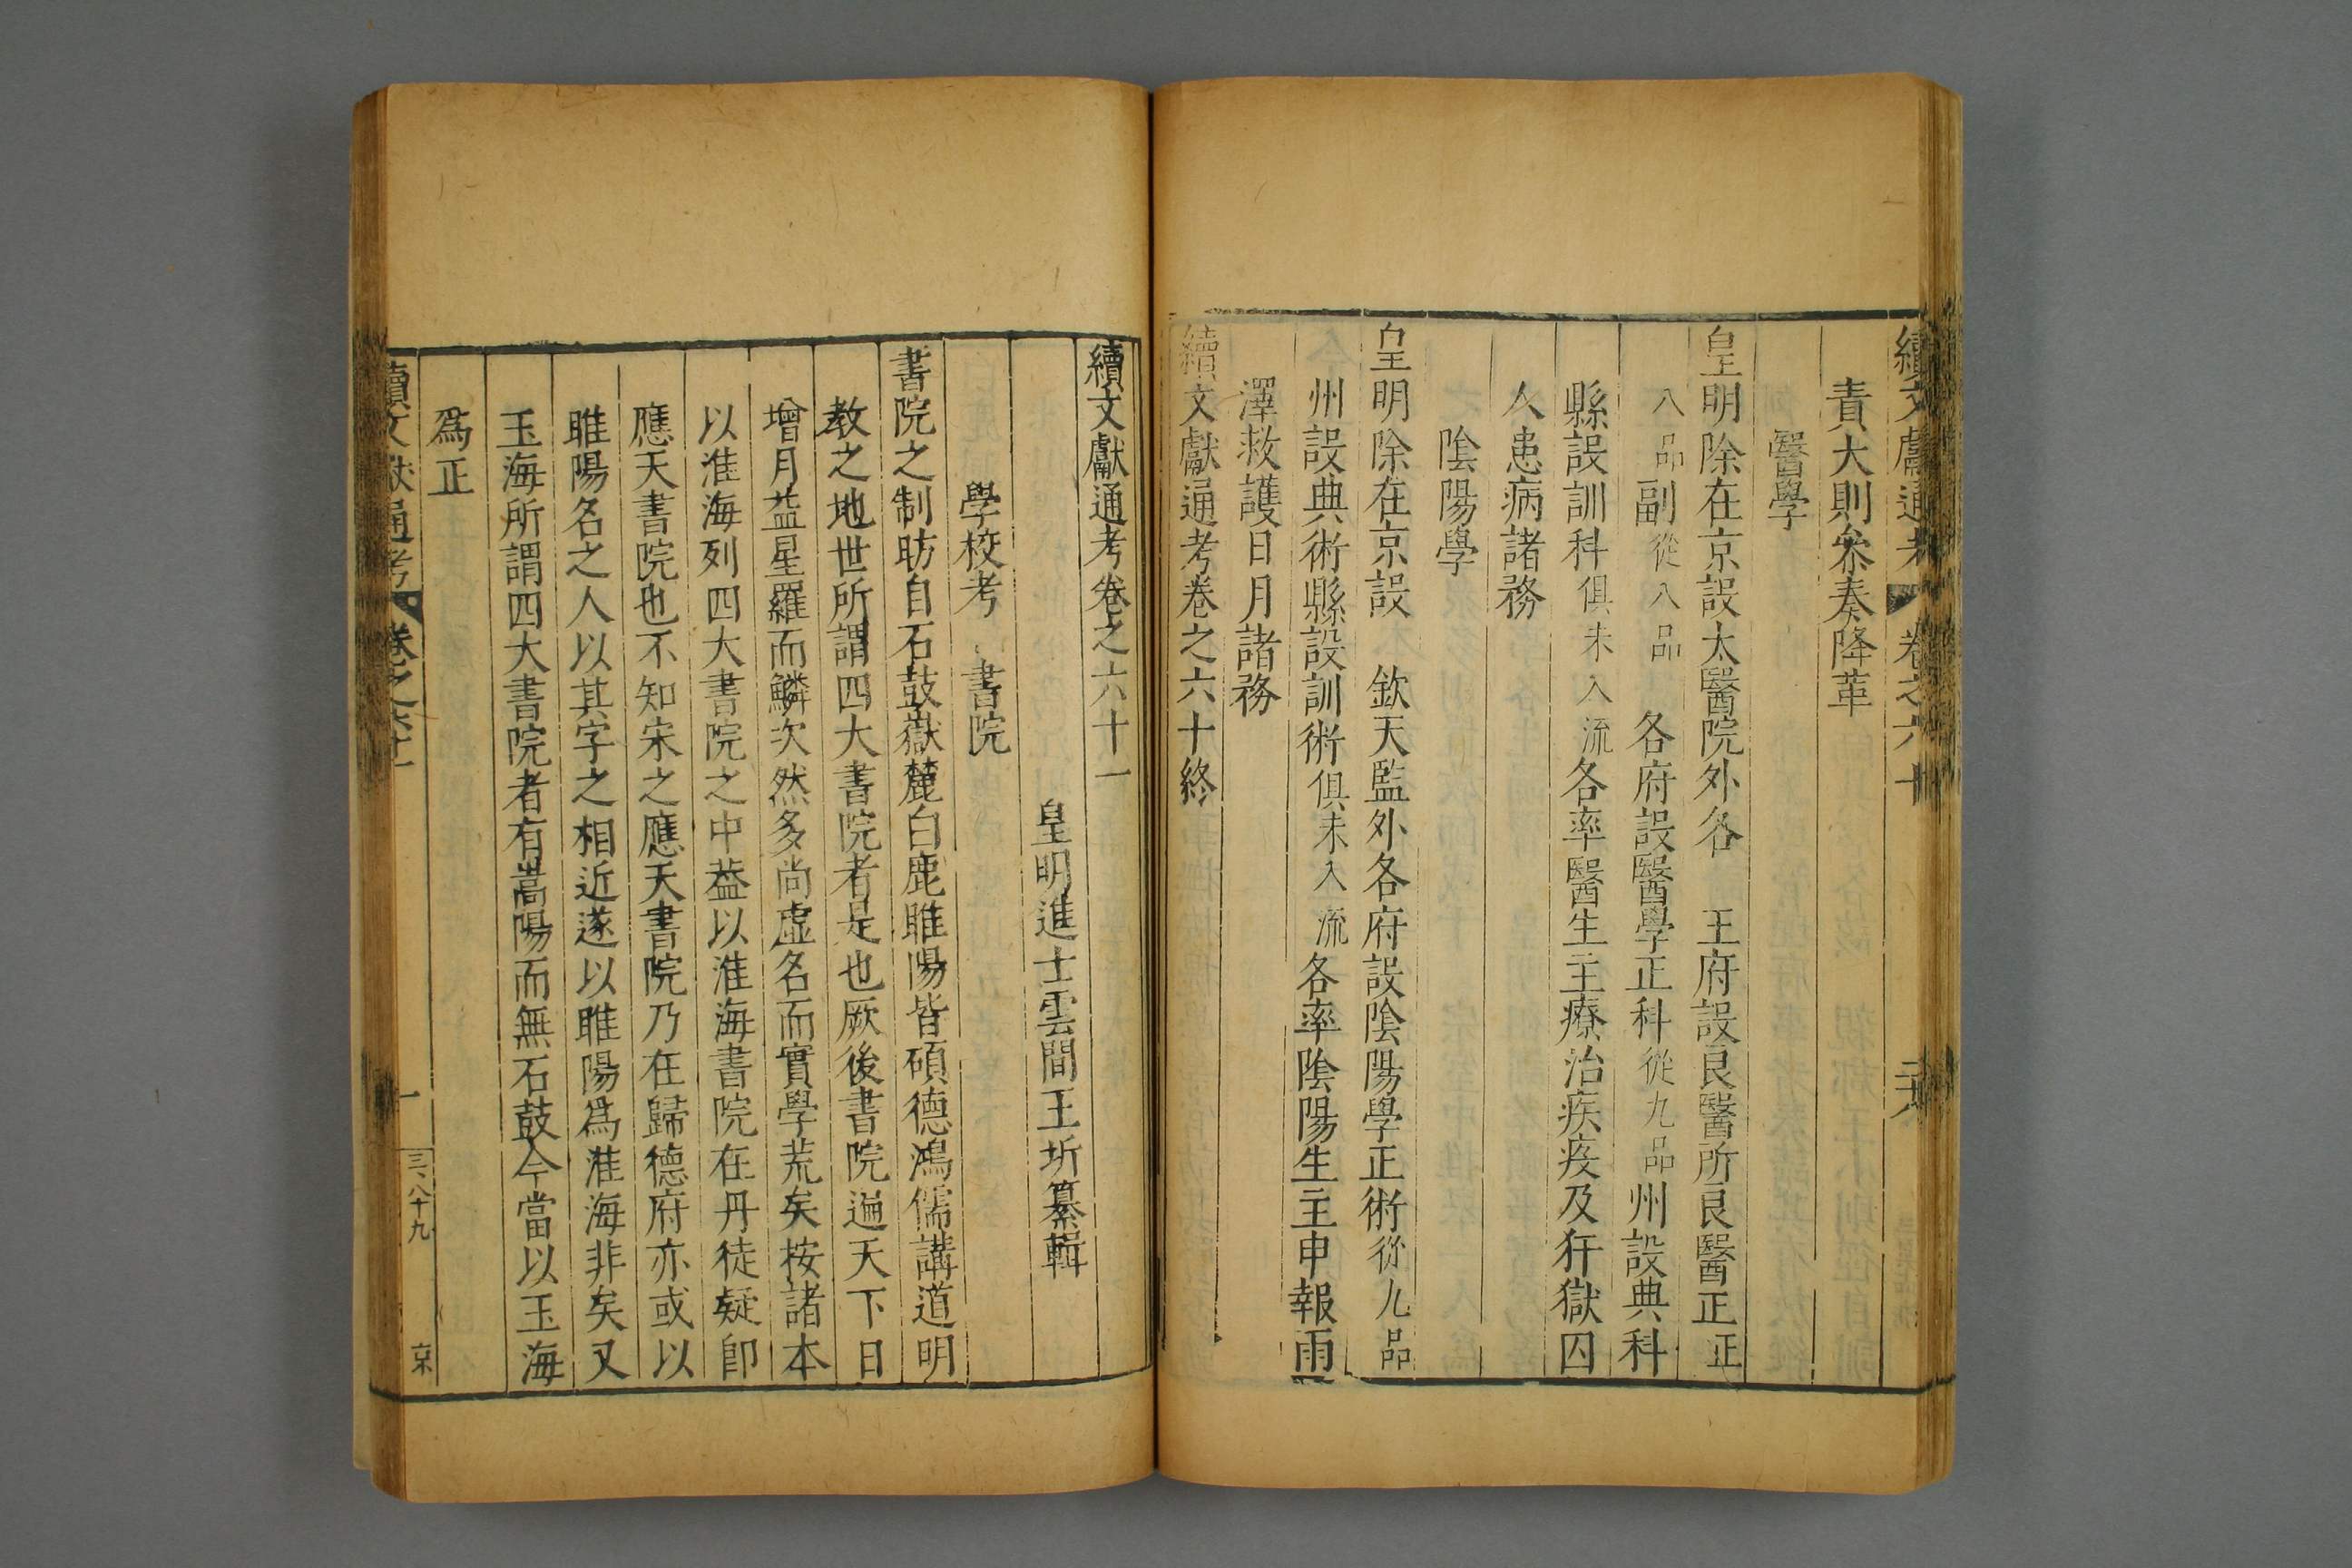 續文獻通考 卷之六十 二十六
責大則叅奏降革
醫學
皇明除在京設太醫院外各 王府設良醫所良醫正正
八品副從八品 各府設醫學正科從九品州設典科
縣設訓科俱未入流各率醫生主療治疾疫及犴獄囚
人患病諸務
陰陽學
皇明除在京設 欽天監外各府設陰陽學正術從九品
州設典術縣設訓術俱未入流各率陰陽生主申報雨
澤救護日月諸務
續文獻通考卷之六十終
續文獻通考卷之六十一
皇明進士雲間王圻纂輯
學校考 書院
書院之制昉自石鼓嶽麓白鹿睢陽皆碩德鴻儒講道明
教之地世所謂四大書院者是也厥後書院遍天下日
增月益星羅而鱗次然多尚虛名而實學荒矣按諸本
以淮海列四大書院之中葢以淮海書院在丹徒疑卽
應天書院也不知宋之應天書院乃在歸德府亦或以
睢陽名之人以其字之相近遂以睢陽爲淮海非矣又
玉海所謂四大書院者有嵩陽而無石鼓今當以玉海
爲正
續文獻通考 卷之六十一 一 三八十九 京